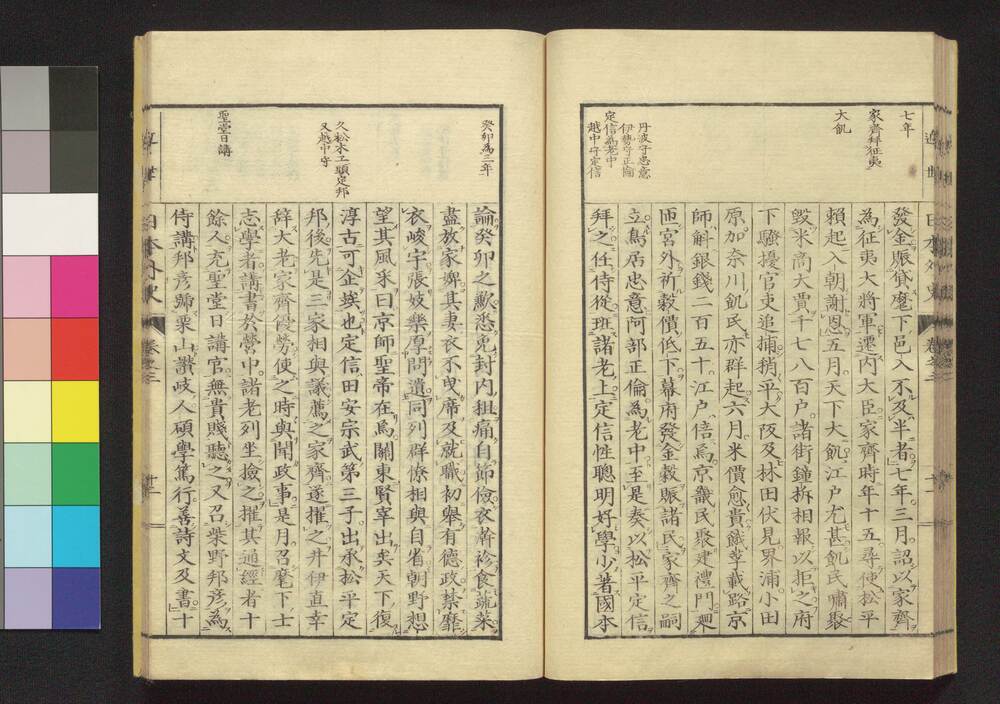 七年
家齊拜征夷
大飢
丹波守忠意
伊勢守正倫
定信為老中
越中守定信
發金賑貸麾下邑入不及半者七年三月詔以家齊
為征夷大將軍遷內大臣家齊時年十五尋使松平
賴起入朝謝恩五月天下大飢江戶尤甚飢民嘯聚
毀米商大賈千七八百戶諸街鐘柝相報以拒之府
下騷擾官吏追捕稍平大阪及林田伏見界浦小田
原加奈川飢民亦群起六月米價愈貴餓莩載路京
師斛銀錢二百五十江戶倍焉京畿民聚建禮門廻
匝宮外祈穀價低下幕府發金穀賑諸民家齊之嗣
立鳥居忠意阿部正倫為老中至是奏以松平定信
拜之任侍從班諸老上定信性聰明好學少著國本
癸卯為三年
久松木工頭定邦
又越中守
聖堂日講
論癸卯之歉悉免封內租痛自節儉衣澣袗食蔬菜
盡放家婢其妻衣不曳席及就職初舉有德政禁靡
衣峻宇張妓樂厚問遺同列群僚相與自省朝野想
望其風采曰京師聖帝在焉關東賢宰出矣天下復
淳古可企俟也定信田安宗武第三子出承松平定
邦後先是三家相與議薦之家齊遂擢之井伊直幸
辭大老家齊慢勞使之時與聞政事是月召麾下士
志學者講書於營中諸老列坐撿之擢其通經者十
餘人充聖堂日講官無貴賤聽之又召柴野邦彥為
侍講邦彥歸栗山讚岐人碩學篤行善詩文及書十
日本外史
卷之三